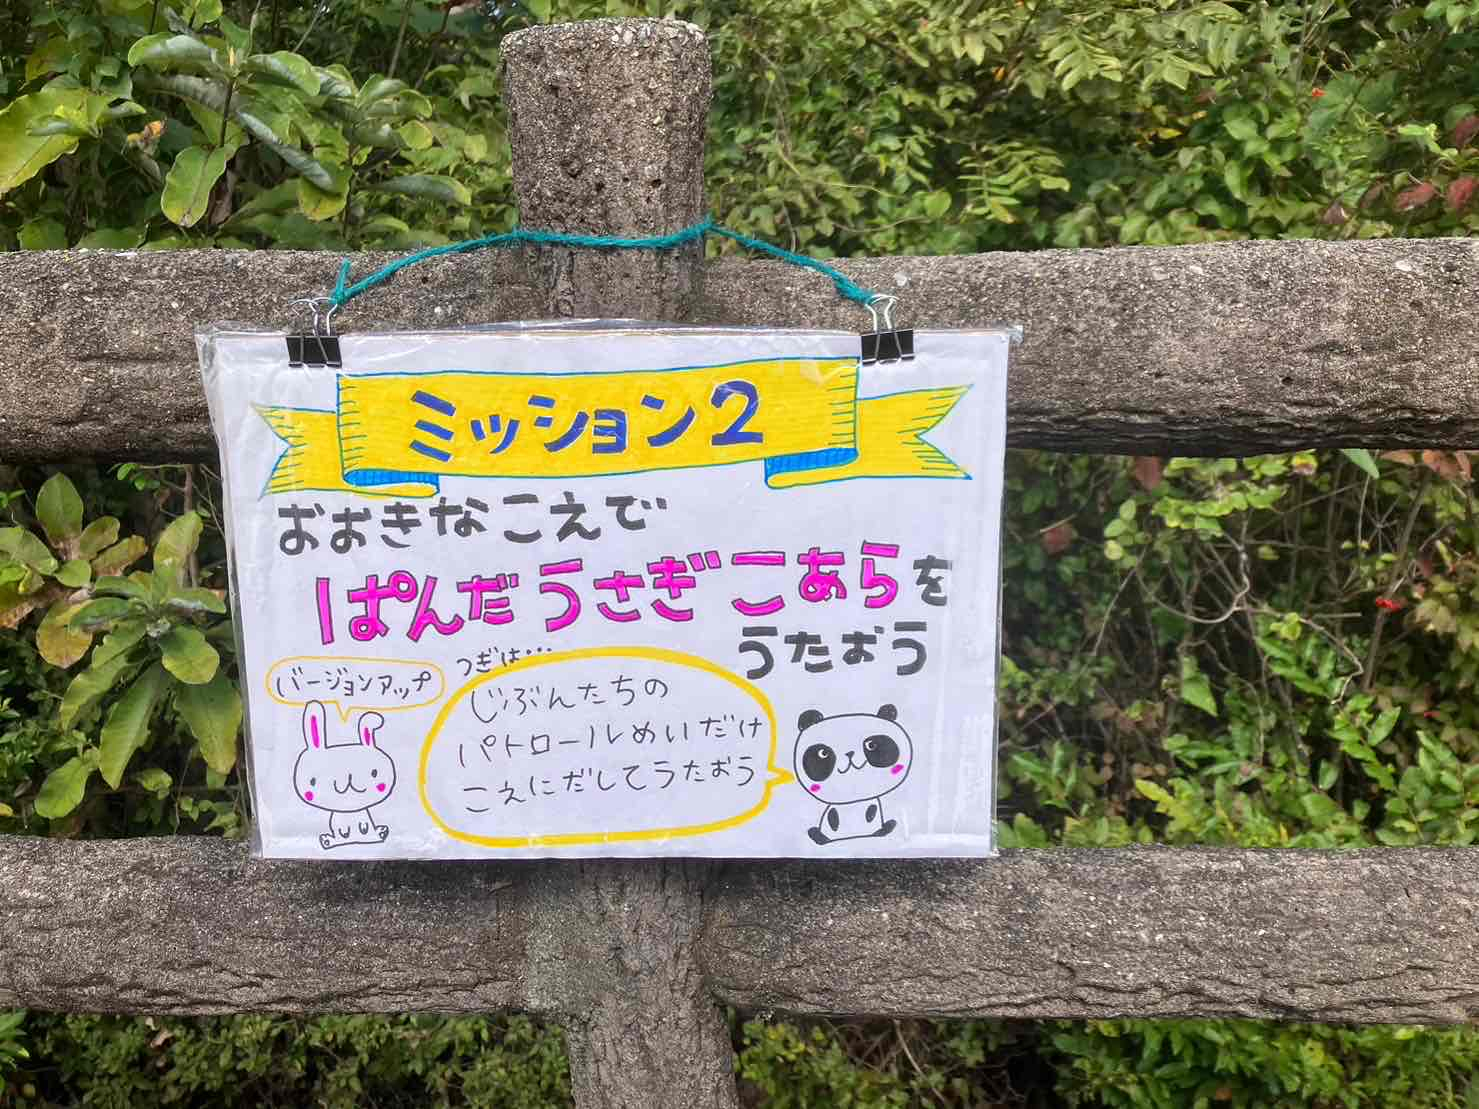 ミッション2
おおきなこえで
ぱんだうさぎこあらを
うたおう
バージョンアップ
つぎは…
じぶんたちの
パトロールめいだけ
こえにだしてうたおう